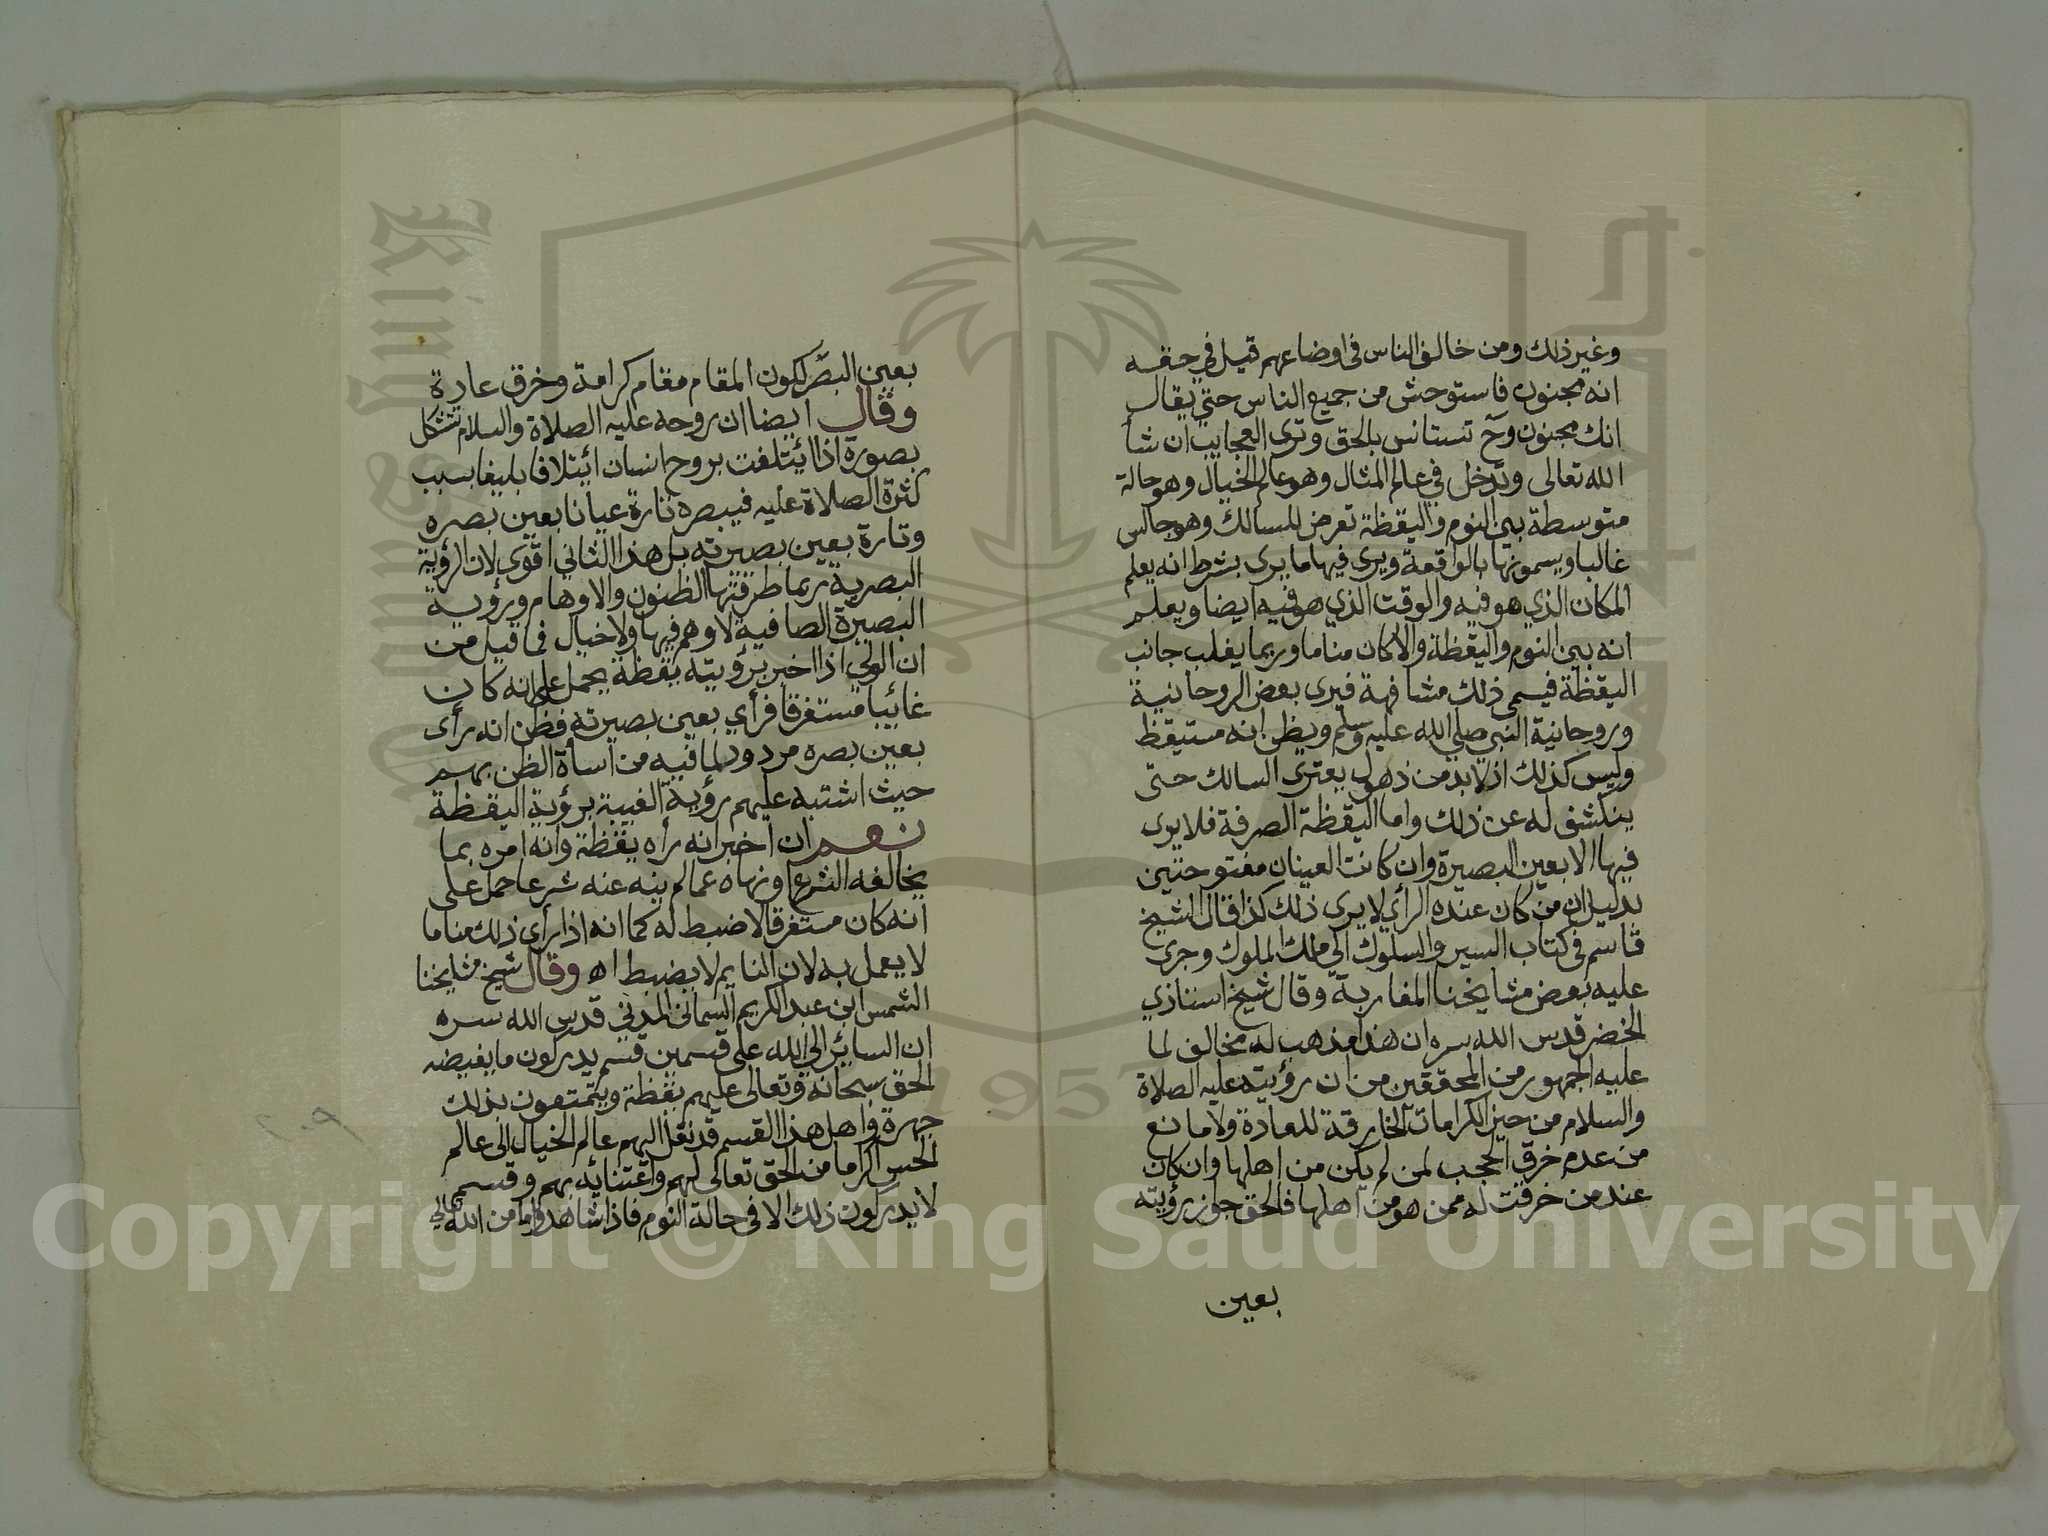 وغير ذلك ومن خالف الناس في اوضاعهم قيل في حقه
انه مجنون فاستوحش من جميع الناس حتى يقال
انك مجنون وح تستانس بالحق وترى العجايب ان شأ
الله تعالى وتدخل في عالم المثال وهو عالم الخيال وهو حالة
متوسطة بين النوم واليقظة تعرض للسالك وهو جالس
غالبا ويسمونها بالواقعة ويرى فيها ما يرى بشرط انه يعلم
المكان الذي هو فيه والوقت الذي هو فيه ايضا ويعلم
انه بين النوم واليقظة والا كان مناما وربما يغلب جانب
اليقظة فيسمى ذلك مشافهة فيرى بعض الروحانية
وروحانية النبي صلى الله عليه وسلم ويظن انه مستيقظ
وليس كذلك اذ لا بد من ذهول يعترى السالك حتى
ينكشف له عن ذلك واما اليقظة الصرفة فلا يرى
فيها الا بعين البصيرة وان كانت العينان مفتوحتين
بدليل ان من كان عنده الرأي لا يرى ذلك كذا قال الشيخ
قاسم في كتاب السير والسلوك الى ملك الملوك وجرى
عليه بعض مشايخنا المغاربة وقال شيخ استاذي
الخضر قدس الله سره ان هذا مذهب له مخالف لما
عليه الجمهور من المحققين من ان رؤيته عليه الصلاة
والسلام من حيز الكرامات الخارقة للعادة ولا مانع
من عدم خرق الحجب لمن لم يكن من اهلها وان كان
عند من خرقت له ممن هو من اهلها فالحق جواز رؤيته
بعين
بعين البصر لكون المقام مقام كرامة وخرق عادة
وقال ايضا ان روحه عليه الصلاة والسلام تتشكل
بصورة اذا ايتلفت بروح انسان ائتلافا بليغا بسبب
كثرة الصلاة عليه فيبصره تارة عيانا بعين بصره
وتارة بعين بصيرته بل هذا الثاني اقوى لان الرؤية
البصرية ربما طرقتها الظنون والاوهام ورؤية
البصيرة الصافية لا وهم فيها ولا خيال فما قيل من
ان الولي اذا اخبر برؤيته يقظة يحمل على انه كان
غائبا مستغرقا فرأي بعين بصيرته فظن انه رأى
بعين بصره مردود لما فيه من اسأة الظن بهم
حيث اشتبه عليهم رؤية الغيبة برؤية اليقظة
نعم ان اخبر انه رأه يقظة وانه امره بما
يخالفه الشرع او نهاه عما لم ينه عنه شرعا حمل على
انه كان مستغرقا لا ضبط له كما انه اذا رأى ذلك مناما
لا يعمل به لان النايم لا يضبط اه وقال شيخ مشايخنا
الشمس ابن عبد الكريم السماني المدني قدس الله سره
ان السائر الي الله على قسمين قسم يدركون ما يفيضه
الحق سبحانه وتعالى عليهم يقظة ويتمتعون بذلك
جهرة واهل هذا القسم قد نقل اليهم عالم الخيال الى عالم
الحس اكراما من الحق تعالى لهم واعتنائه بهم وقسم
لا يدركون ذلك الا في حالة النوم فاذا شاهدوا ما من الله تعالي
King Saud University
1957
Copyright © King Saud University